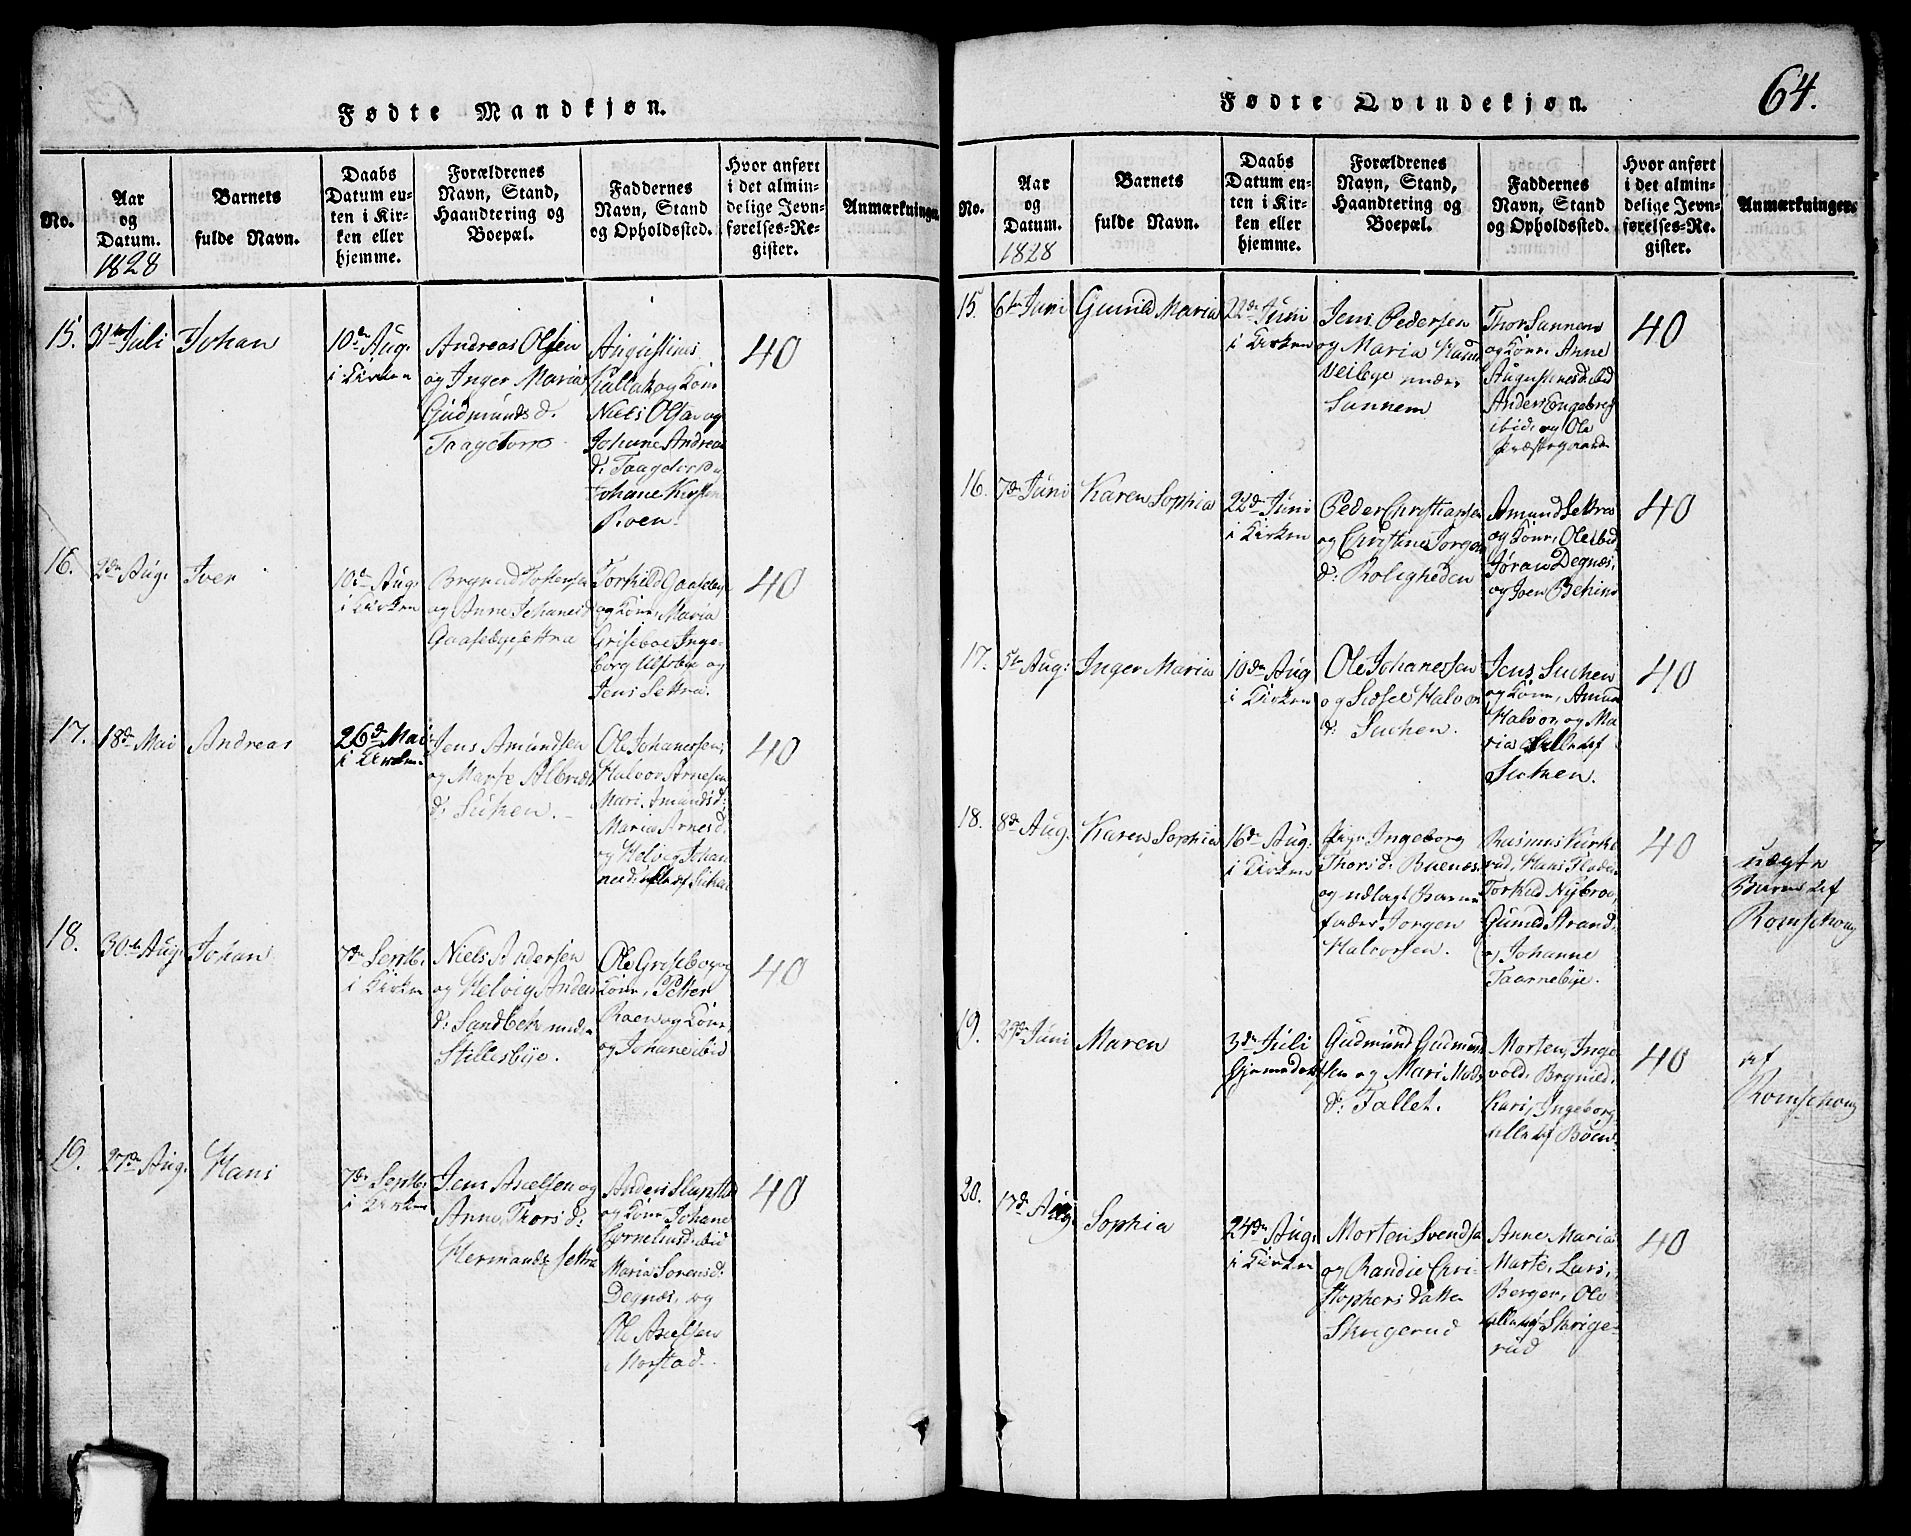 Fødte Mandkjøn.
No.
Aar
og
Datum.
1828
Barnets
fulde Navn.
Daabs
Datum en-
ten i Kir-
ken eller
hjemme.
Forældrenes
Navn, Stand,
Haandtering og
Boepæl.
Faddernes
Navn, Stand
og Opholdssted.
Hvor anført
i det almin-
delige Jevn-
førelses-Re-
gister.
Anmærkninger.
15.
31te Juli
Johan
10de Aug.
i Kirken
Andreas Olsen
og Inger Maria
Gudmundsd.
Taagetorn
Augustinus
og Kone
Niels Olsen og
Johane Andreas
d:
Johane Kirsten
Roen.
40
16.
2den Aug:
Iver
10de Aug:
i Kirken
Brynild Johansen
og Anne Johanesd
Torkild
og Kone, Maria
Griseboe Inge-
borg Ulfsbye og
Jens Settra.
40
17.
18de Mai
Andreas
26de Mai
i Kirken
Jens Amundsen
og Marte
d: Suken.
Ole Johanesen,
Halvor Arnesen
Mari Amundsd:
Maria Arnesd.
og Helvig Johan
alle af Suken
40
18.
30te Aug:
Johan
7de Septb.
i Kirken
Niels Andersen
og Helvig Anders
d: Sandbek under
Stillesbye.
Ole Griseboe og
Kone, Petter
Roen og Kone,
og Johane ibid
40
19.
27de Aug.
Hans
7de Septb.
i Kirken
Jens Axelsen og
Anne Thorsd:
Hermands Settra
Anders
og Kone Johane
Corneliusd. ibid
Maria Sorensd:
Degnæs, og
Ole Axelsen
Morstad.
40
Fødte Qvindekjøn.
64.
No.
Aar
og
Datum.
1828
Barnets
fulde Navn.
Daabs
Datum en-
ten i Kir-
ken eller
hjemme.
Forældrenes
Navn, Stand,
Haandtering og
Boepæl.
Faddernes
Navn, Stand
og Opholdssted.
Hvor anført
i det almin-
delige Jevn-
førelses-Re-
gister.
Anmærkninger.
15.
6te Juni
Gunild Maria
22de Juni
i Kirken
Jens Pedersen
og Maria Hans
Veilbye under
Sannem
Thor Sannem
og Kone, Anne
Augustinesd. ibid
Anders Engebreg
ibid. og Ole
Præstegaarden
40
16.
7de Juni
Karen Sophia
22de Juni
i Kirken
Peder Christiansen
og Christine Jorgen
d: Roligheden
Amund Settra
og Kone, Ole ibid
Jøran Degnæs,
og Iver
40
17.
5te Aug:
Inger Maria
10de Aug
i Kirken
Ole Johanessen
og Sidsel Halvor
d: Suken.
Jens Suken
og Kone, Amund
Halvor og Ma-
ria alle af
Suken.
40
18.
8de Aug.
Karen Sophia
16de Aug.
i Kirken
Pige Ingeborg
Thorsd: Buenæs.
og udlagt Barne
fader Jorgen
Halvorsen.
Rasmus Kirke
rud, Hans
Torkild Nybroe,
Gunild Strand,
og Johanne
Taarnebye.
40
uægte
Barn af
Romschoug
19.
29de Juni
Maren
3de Juli
Gudmund Gudmund
sen og Mari Mads
d: Fallet.
Morten, Inge
vold, Brynild,
Kari, Ingeborg
alle af Boen.
40
af
Romschoug
20.
17de Aug:
Sophia
24de Aug:
i Kirken
Morten Svendsen
og Randie Chri-
stophers datter
Skrigerud
Anne Maria
Marte, Lars,
Berger, Ole
alle af Skrige-
rud
40